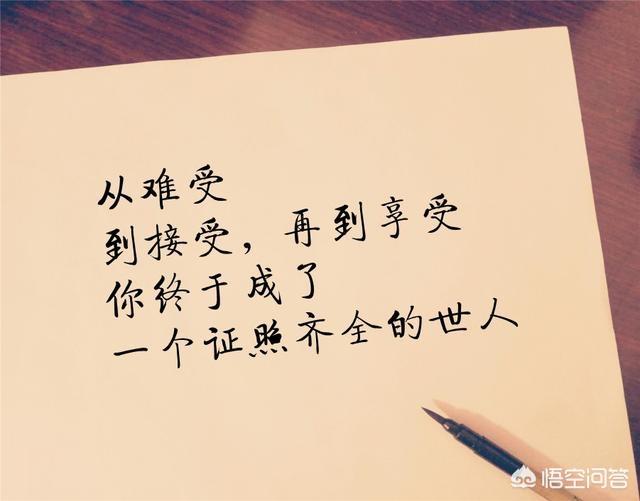 从难受
到接受，再到享受
你终于成了
一个证照齐全的世人
悟空问答